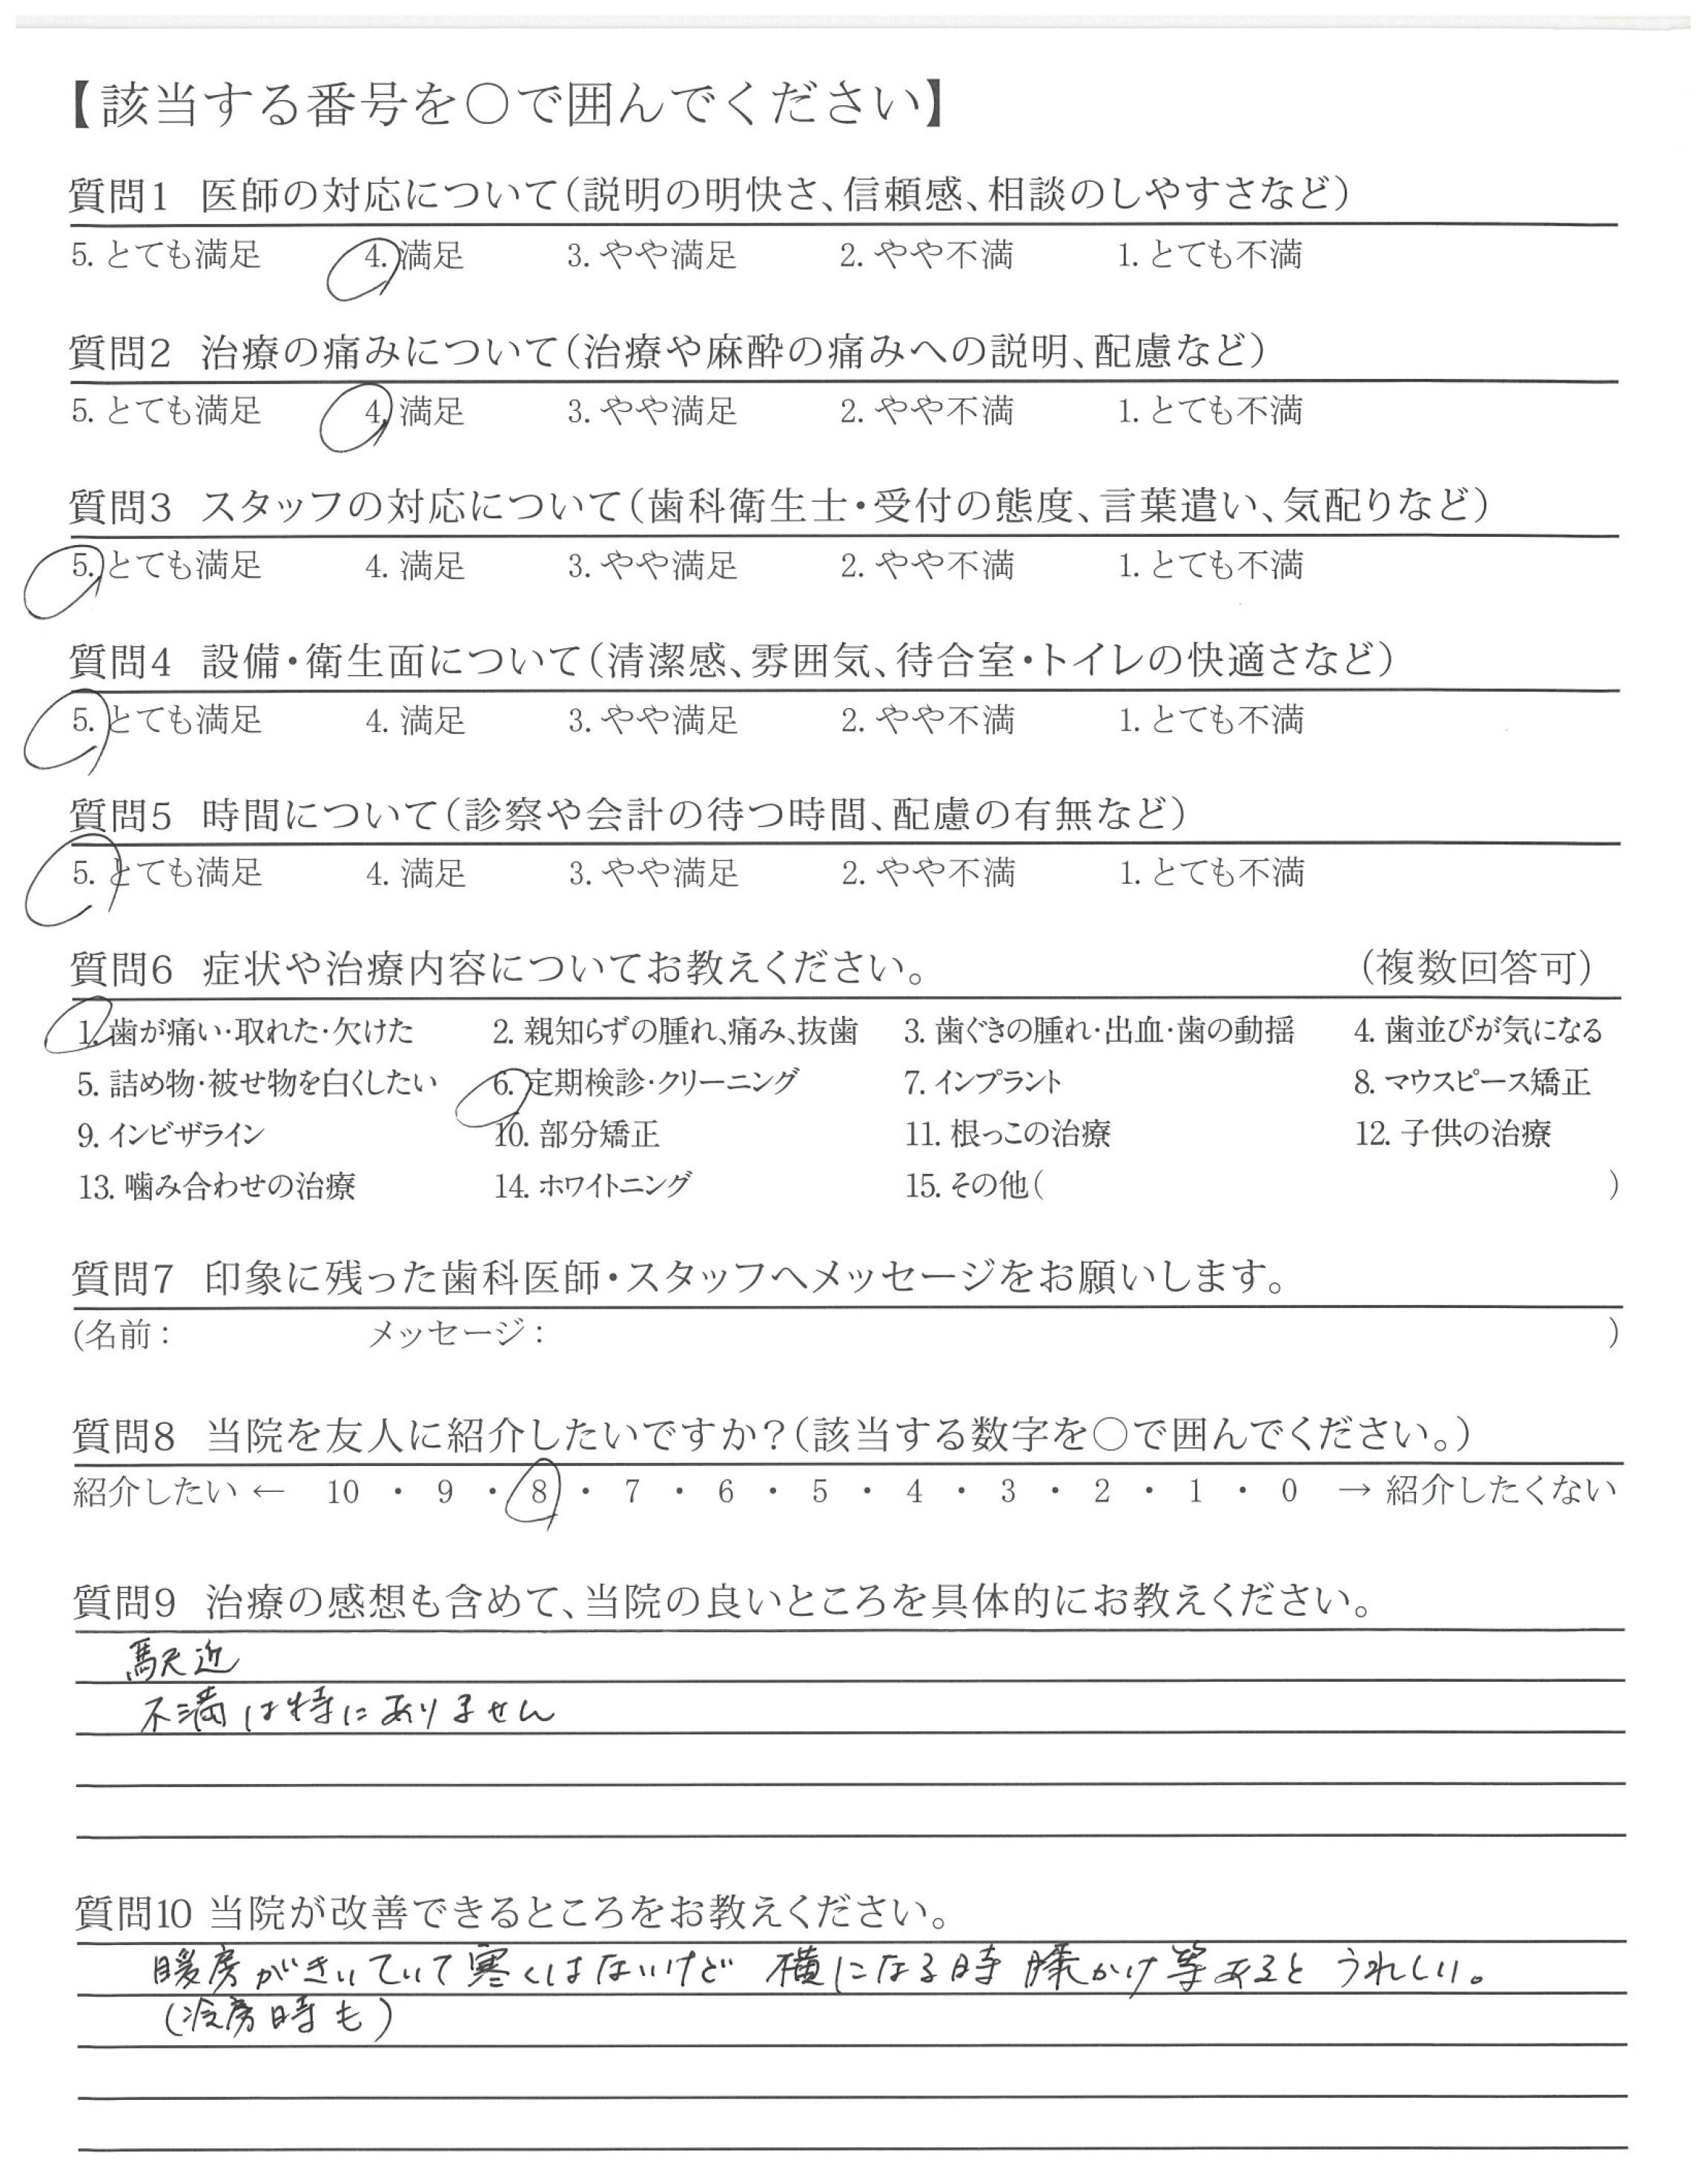 【該当する番号を○で囲んでください】
質問1 医師の対応について(説明の明快さ、信頼感、相談のしやすさなど)
5. とても満足 4. 満足 3. やや満足 2. やや不満 1. とても不満
質問2 治療の痛みについて(治療や麻酔の痛みへの説明、配慮など)
5. とても満足 4. 満足 3. やや満足 2. やや不満 1. とても不満
質問3 スタッフの対応について(歯科衛生士・受付の態度、言葉遣い、気配りなど)
5. とても満足 4. 満足 3. やや満足 2. やや不満 1. とても不満
質問4 設備・衛生面について(清潔感、雰囲気、待合室・トイレの快適さなど)
5. とても満足 4. 満足 3. やや満足 2. やや不満 1. とても不満
質問5 時間について(診察や会計の待つ時間、配慮の有無など)
5. とても満足 4. 満足 3. やや満足 2. やや不満 1. とても不満
質問6 症状や治療内容についてお教えください。 (複数回答可)
1. 歯が痛い・取れた・欠けた 2. 親知らずの腫れ、痛み、抜歯 3. 歯ぐきの腫れ・出血・歯の動揺 4. 歯並びが気になる
5. 詰め物・被せ物を白くしたい 6. 定期検診・クリーニング 7. インプラント 8. マウスピース矯正
9. インビザライン 10. 部分矯正 11. 根っこの治療 12. 子供の治療
13. 噛み合わせの治療 14. ホワイトニング 15. その他( )
質問7 印象に残った歯科医師・スタッフへメッセージをお願いします。
(名前: メッセージ: )
質問8 当院を友人に紹介したいですか?(該当する数字を○で囲んでください。)
紹介したい ← 10 ・ 9 ・ 8 ・ 7 ・ 6 ・ 5 ・ 4 ・ 3 ・ 2 ・ 1 ・ 0 → 紹介したくない
質問9 治療の感想も含めて、当院の良いところを具体的にお教えください。
駅近
不満は特にありません
質問10 当院が改善できるところをお教えください。
暖房がきいていて寒くはないけど 横になる時 膝かけ等あると うれしい。
(冷房時も)